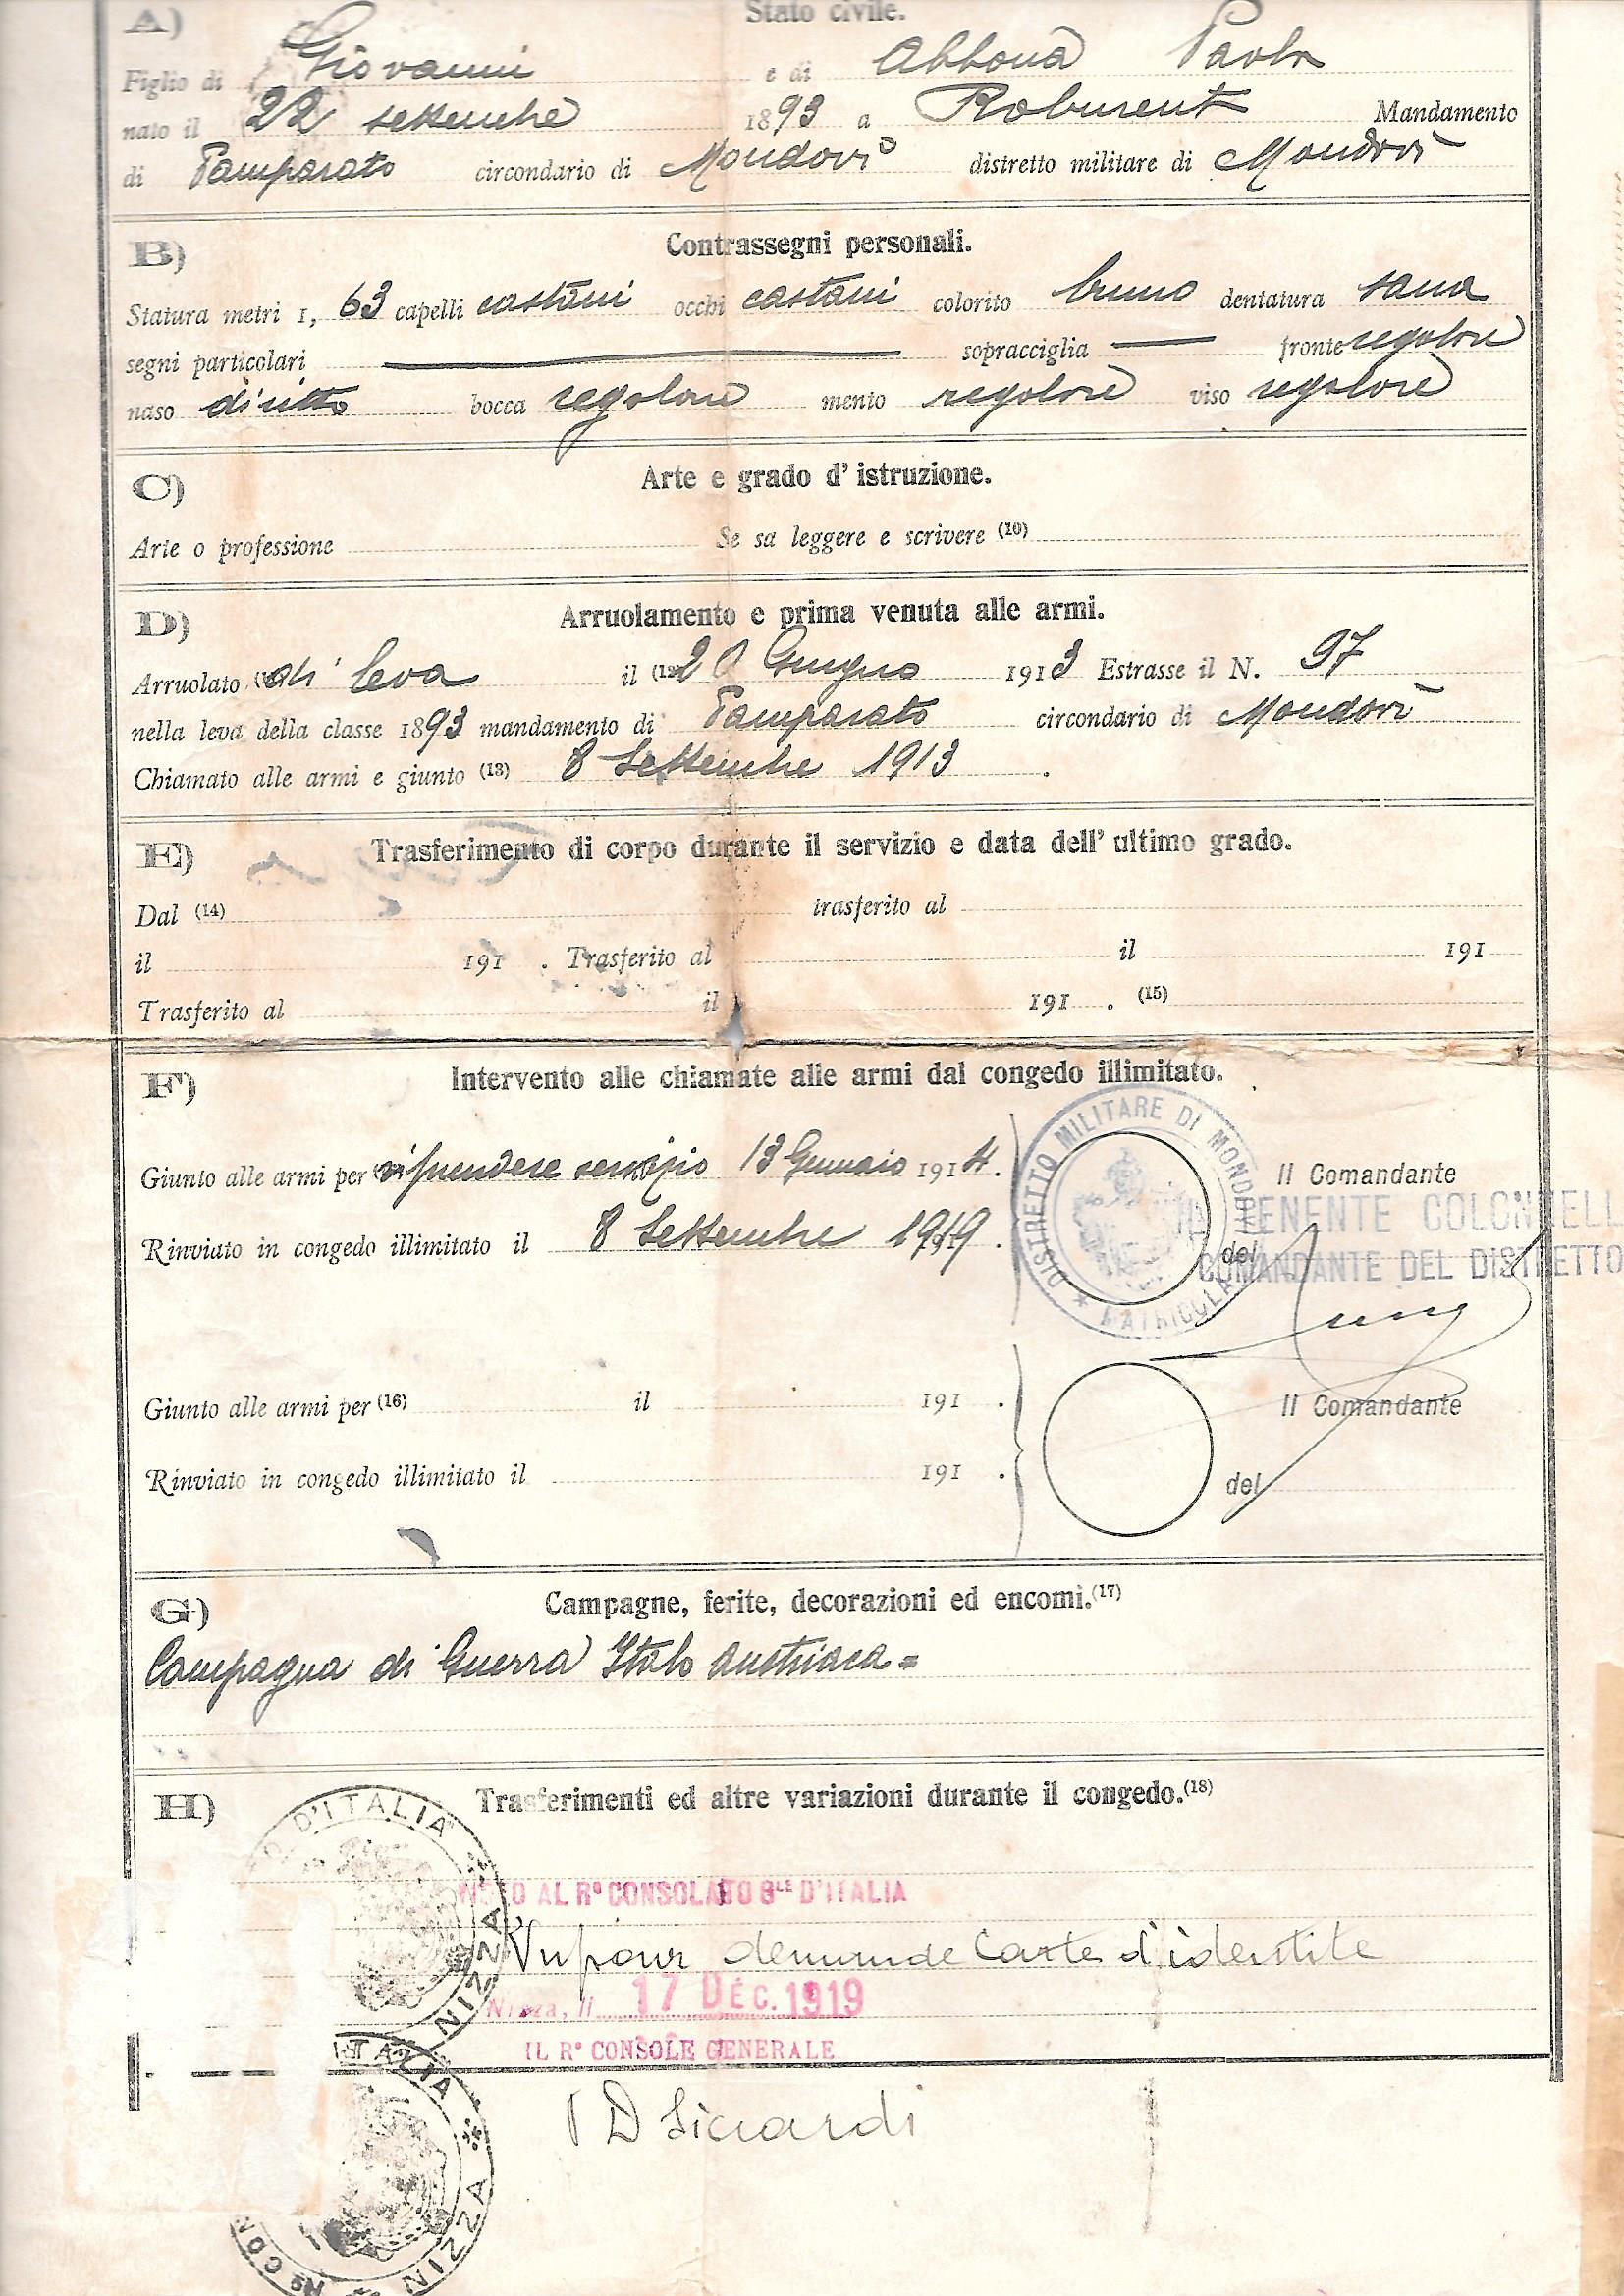 A) Stato civile.
Figlio di Giovanni e di Abbonà Paola
nato il 22 settembre 1893 a Roburent Mandamento
di Pamparato circondario di Mondovì distretto militare di Mondovì
B) Contrassegni personali.
Statura metri 1, 63 capelli castani occhi castani colorito bruno dentatura sana
segni particolari — sopracciglia — fronte regolare
naso diritto bocca regolare mento regolare viso regolare
C) Arte e grado d' istruzione.
Arte o professione Se sa leggere e scrivere (10)
D) Arruolamento e prima venuta alle armi.
Arruolato di leva il (12) 20 Giugno 1913 Estrasse il N. 97
nella leva della classe 1893 mandamento di Pamparato circondario di Mondovì
Chiamato alle armi e giunto (13) 8 Settembre 1913 .
E) Trasferimento di corpo durante il servizio e data dell' ultimo grado.
Dal (14) trasferito al
il 191 . Trasferito al il 191
Trasferito al il 191 . (15)
F) Intervento alle chiamate alle armi dal congedo illimitato.
DISTRETTO MILITARE DI MONDOVÌ * MATRICOLA
Giunto alle armi per riprendere servizio 13 Gennaio 1914. Il Comandante
IL TENENTE COLONNELL
Rinviato in congedo illimitato il 8 Settembre 1919 . del
COMANDANTE DEL DISTRETTO
Giunto alle armi per (16) il 191 . Il Comandante
Rinviato in congedo illimitato il 191 . del
G) Campagne, ferite, decorazioni ed encomi.(17)
Campagna di Guerra Italo Austriaca =
H) Trasferimenti ed altre variazioni durante il congedo.(18)
D'ITALIA NIZZA
AL Rº CONSOLATO GLE D'ITALIA
Vu pour demande Carte d'identite
Nizza, li 17 DÉC. 1919
IL Rº CONSOLE GENERALE
Siccardi
Rº CON ITALIA * NIZZA